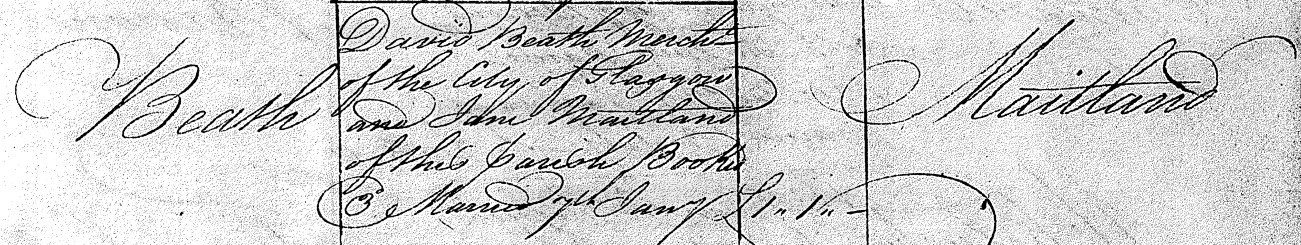 Beath
David Beath Mercht
of the City of Glasgow
and Jane Maitland
of this Parish Booked
3d Married 7th Jany £1 „ 1 „ -
Maitland